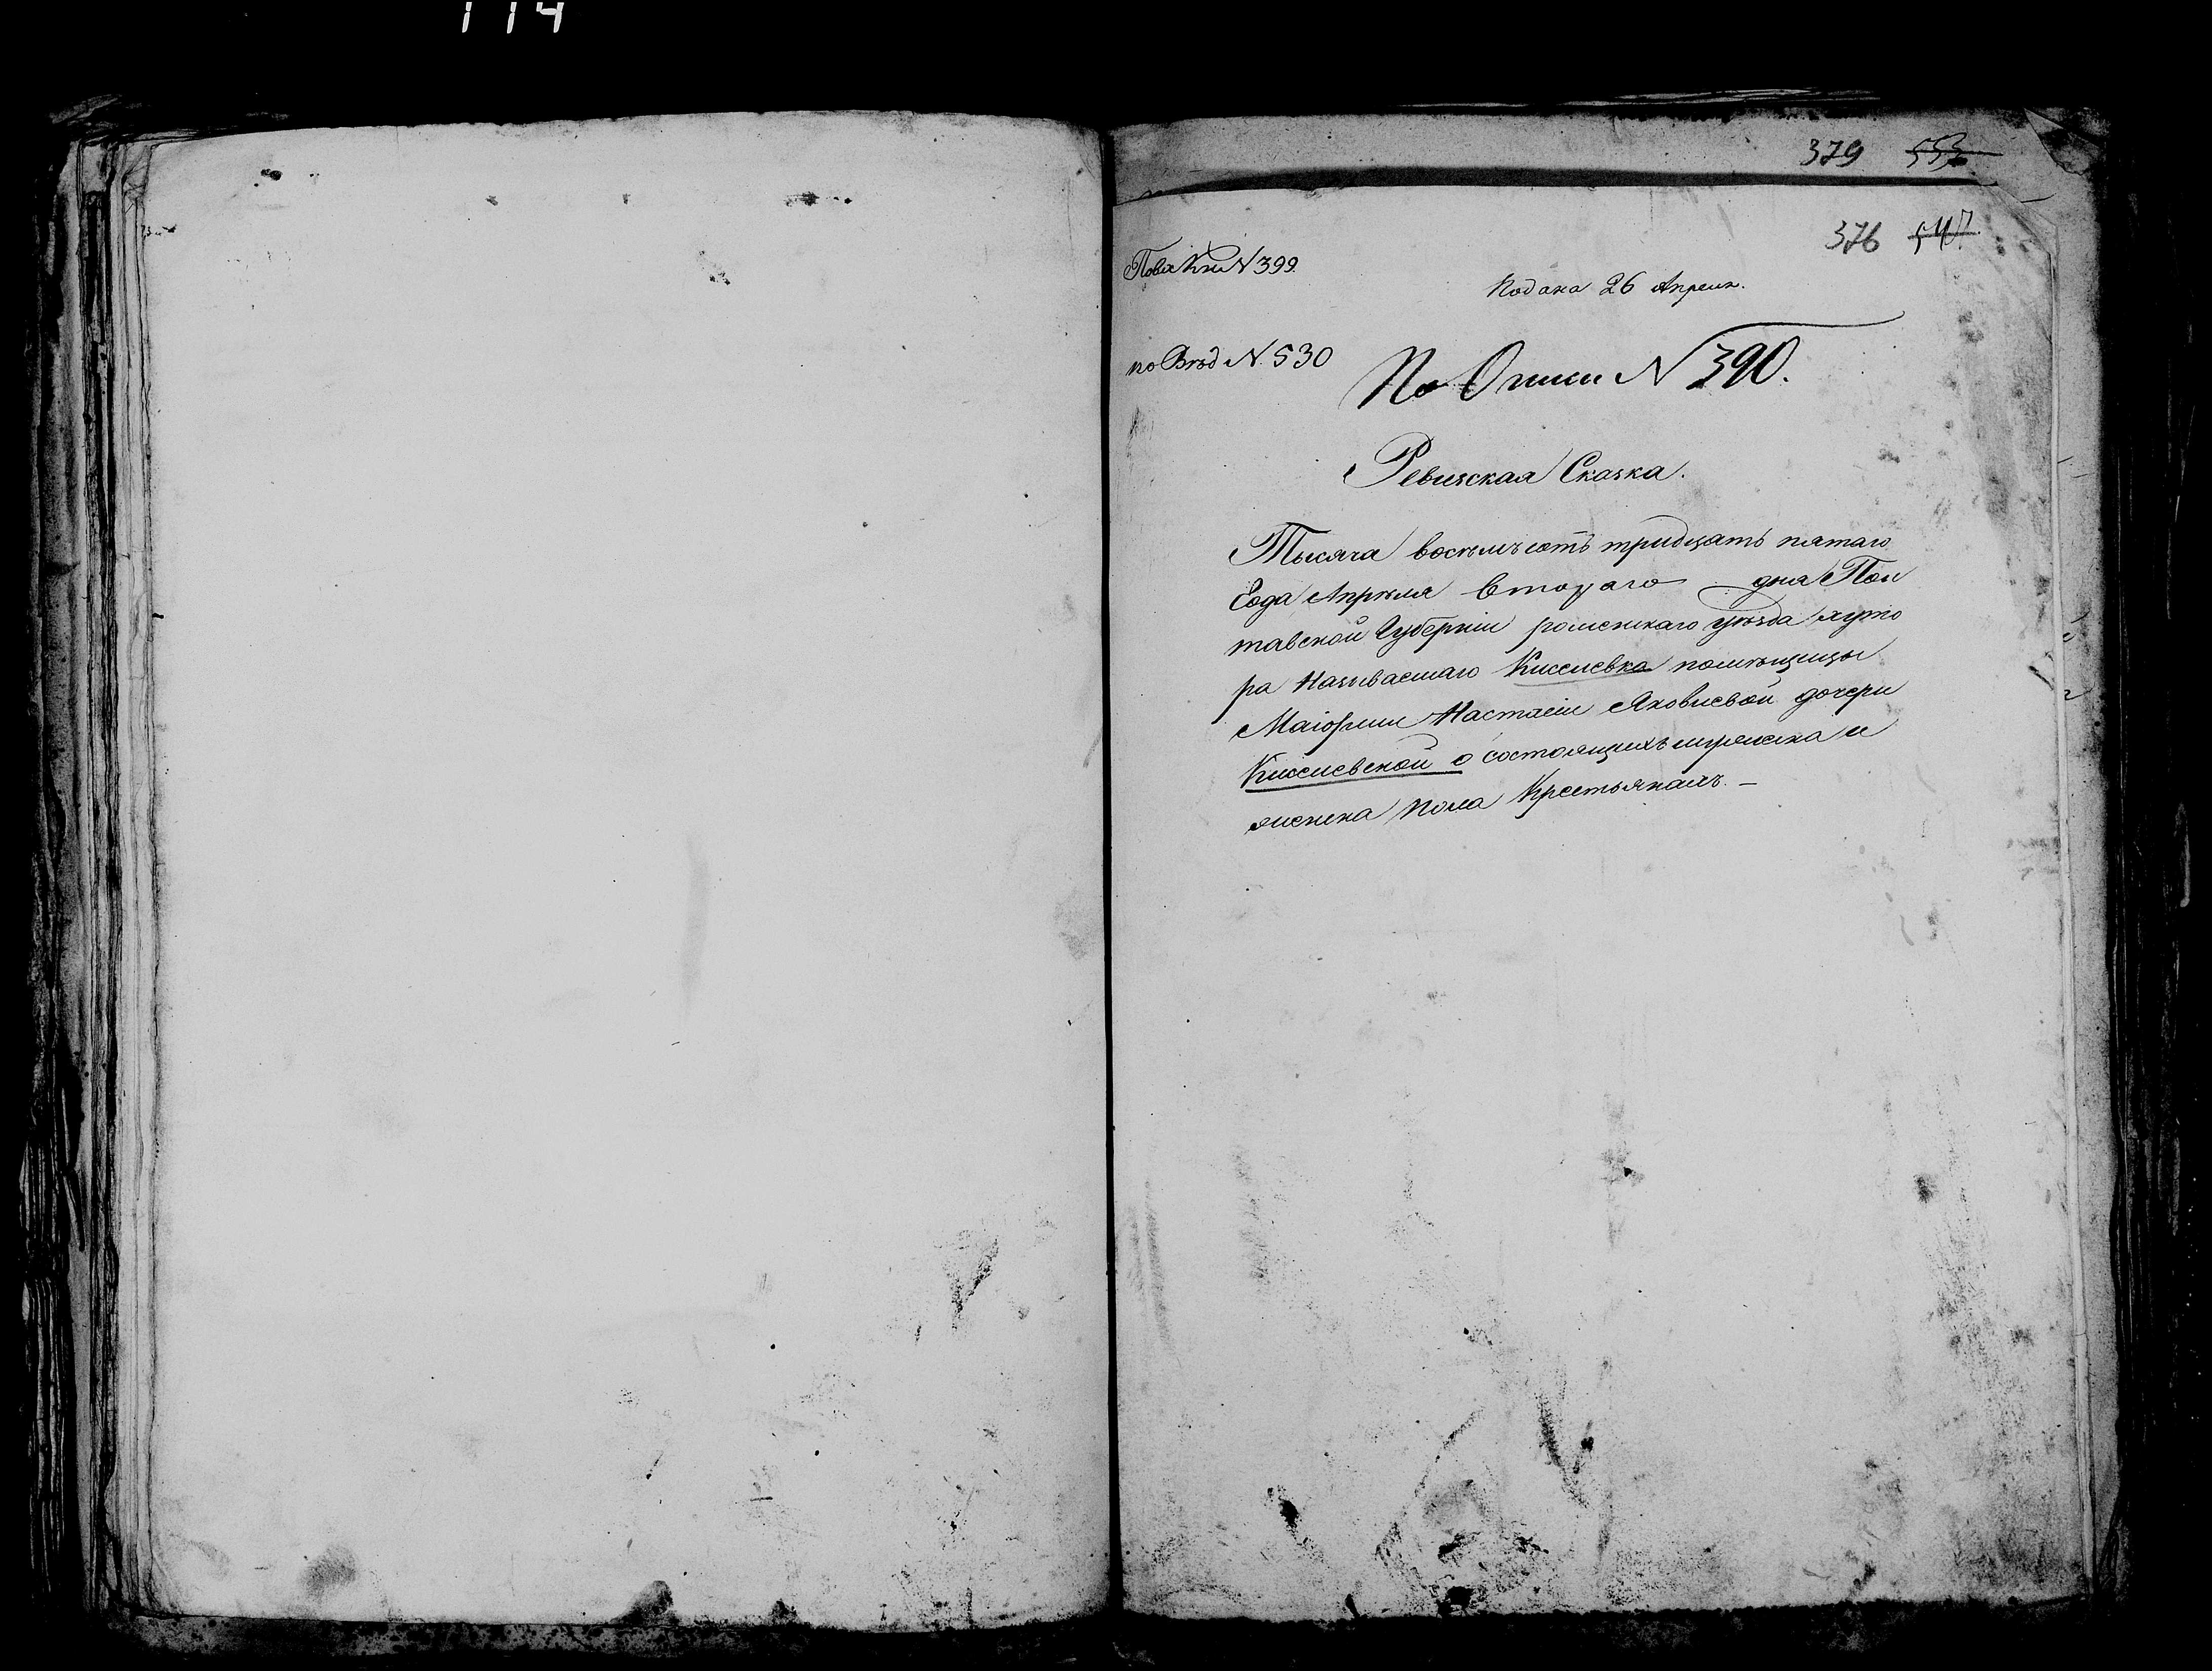 114
379 553
376 547
По Вх Кни N 399
Подана 26 Апреля.
по Вѣд N. 530
По Описи N 390.
Ревизская Сказка.
Тысяча восемъ сотъ тридцать пятаго
Года Апрѣля второго дня Пол
тавской Губернии роменскаго уѣзда хуто
ра Называемаго Киселевка помѣщицы
Маіорши Настасіи Яковлевой дочери
Киселевской о состоящихъ мужеска и
женска пола Крестьянахъ. —